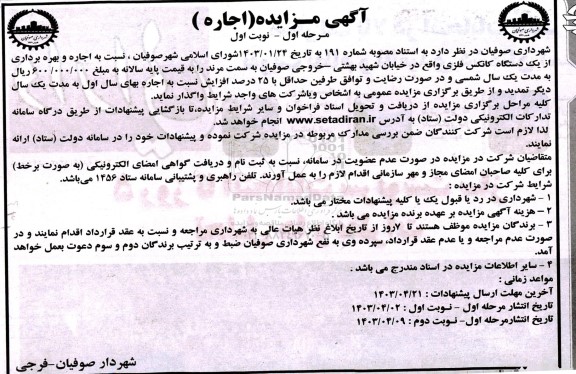 آگهی مـزایده(اجاره )
مرحله اول - نوبت اول
شهرداری صوفیان در نظر دارد به استناد مصوبه شماره ۱۹۱ به تاریخ ۱۴۰۳/۰۱/۲۴شورای اسلامی شهرصوفیان ، نسبت به اجاره و بهره برداری
از یک دستگاه کانکس فلزی واقع در خیابان شهید بهشتی –خروجی صوفیان به سمت مرند را به قیمت پایه سالانه به مبلغ ۶۰۰/۰۰۰/۰۰۰ریال
به مدت یک سال شمسی و در صورت رضایت و توافق طرفین حداقل با ۲۵ درصد افزایش نسبت به اجاره بهای سال اول به مدت یک سال
دیگر تمدید و از طریق برگزاری مزایده عمومی به اشخاص ویاشرکت های واجد شرایط واگذار نماید.
کلیه مراحل برگزاری مزایده از دریافت و تحویل اسناد فراخوان و سایر شرایط مزایده،تا بازگشایی پیشنهادات از طریق درگاه سامانه
تدارکات الکترونیکی دولت (ستاد) به آدرس www.setadiran.ir انجام خواهد شد.
لذا لازم است شرکت کنندگان ضمن بررسی مدارک مربوطه در مزایده شرکت نموده و پیشنهادات خود را در سامانه دولت (ستاد) ارائه
نمایند.
متقاضیان شرکت در مزایده در صورت عدم عضویت در سامانه، نسبت به ثبت نام و دریافت گواهی امضای الکترونیکی (به صورت برخط)
برای کلیه صاحبان امضای مجاز و مهر سازمانی اقدام لازم را به عمل آورند. تلفن راهبری و پشتیبانی سامانه ستاد ۱۴۵۶ می‌باشد.
شرایط شرکت در مزایده :
۱ - شهرداری در رد یا قبول یک یا کلیه پیشنهادات مختار می باشد.
۲ – هزینه آگهی مزایده بر عهده برنده مزایده می باشد .
۳ - برندگان مزایده موظف هستند تا ۷روز از تاریخ ابلاغ نظر هیات عالی به شهرداری مراجعه و نسبت به عقد قرارداد اقدام نمایند و در
صورت عدم مراجعه و یا عدم عقد قرارداد، سپرده وی به نفع شهرداری صوفیان ضبط و به ترتیب برندگان دوم و سوم دعوت بعمل خواهد
آمد.
۴ - سایر اطلاعات مزایده در اسناد مندرج می باشد .
مواعد زمانی :
آخرین مهلت ارسال پیشنهادات : ۱۴۰۳/۰۴/۲۱
تاریخ انتشار مرحله اول - نوبت اول : ۱۴۰۳/۰۴/۰۲
تاریخ انتشارمرحله اول- نوبت دوم : ۱۴۰۳/۰۴/۰۹
شهردار صوفیان-فرجی